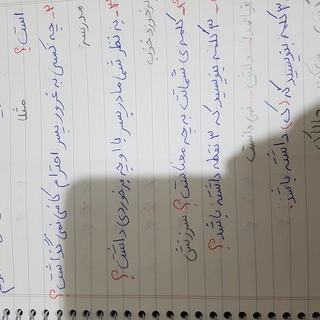 است؟ مثلا
۲- چه کسی به غرور پسر احترام کافی نمی گذاشت؟
مدرسه
۳- به نظر شما مادر پسر با او چه برخوردی داشت؟
برخورد خوب
کلمه ی شماتت به چه معناست؟ سرزنش
۳ کلمه بنویسید که ۳ نقطه داشته باشد؟
دانست
۳ کلمه بنویسید که (کی) داشته باشد.